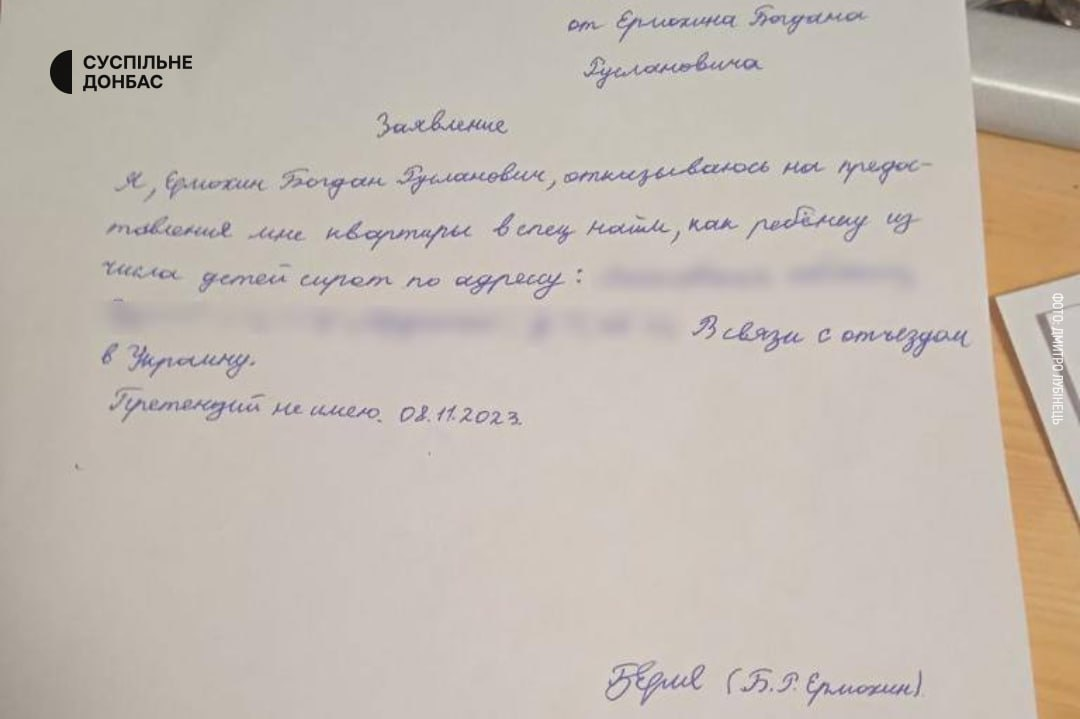 СУСПІЛЬНЕ
ДОНБАС
от Ермохина Богдана
Руслановича
Заявление
Я, Ермохин Богдан Русланович, отказываюсь на предос-
тавления мне квартиры в спец найм, как ребёнку из
числа детей сирот по адрессу:
В связи с отъездом
в Украину.
Претензий не имею. 08.11.2023.
(Б.Р. Ермохин).
ФОТО: ДМИТРО ЛУБІНЕЦЬ